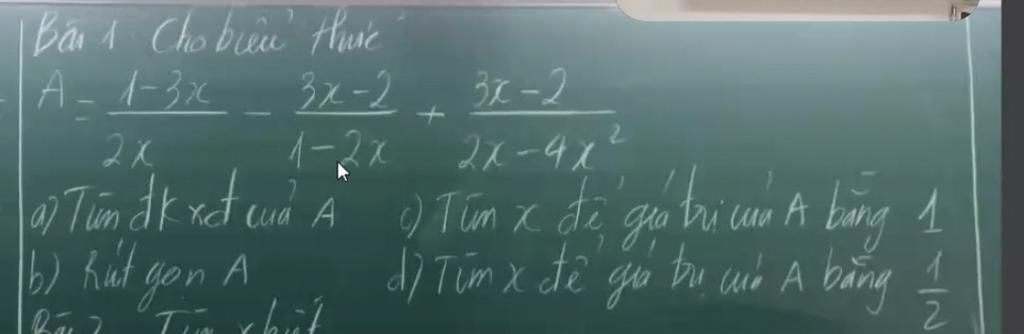 Bài 1 Cho biểu thức
A = \frac{1-3x}{2x} - \frac{3x-2}{1-2x} + \frac{3x-2}{2x-4x^2}
a) Tìm đk xđ của A c) Tìm x để giá trị của A bằng 1
b) Rút gọn A d) Tìm x để giá trị của A bằng \frac{1}{2}
Bài 2 Tìm x biết